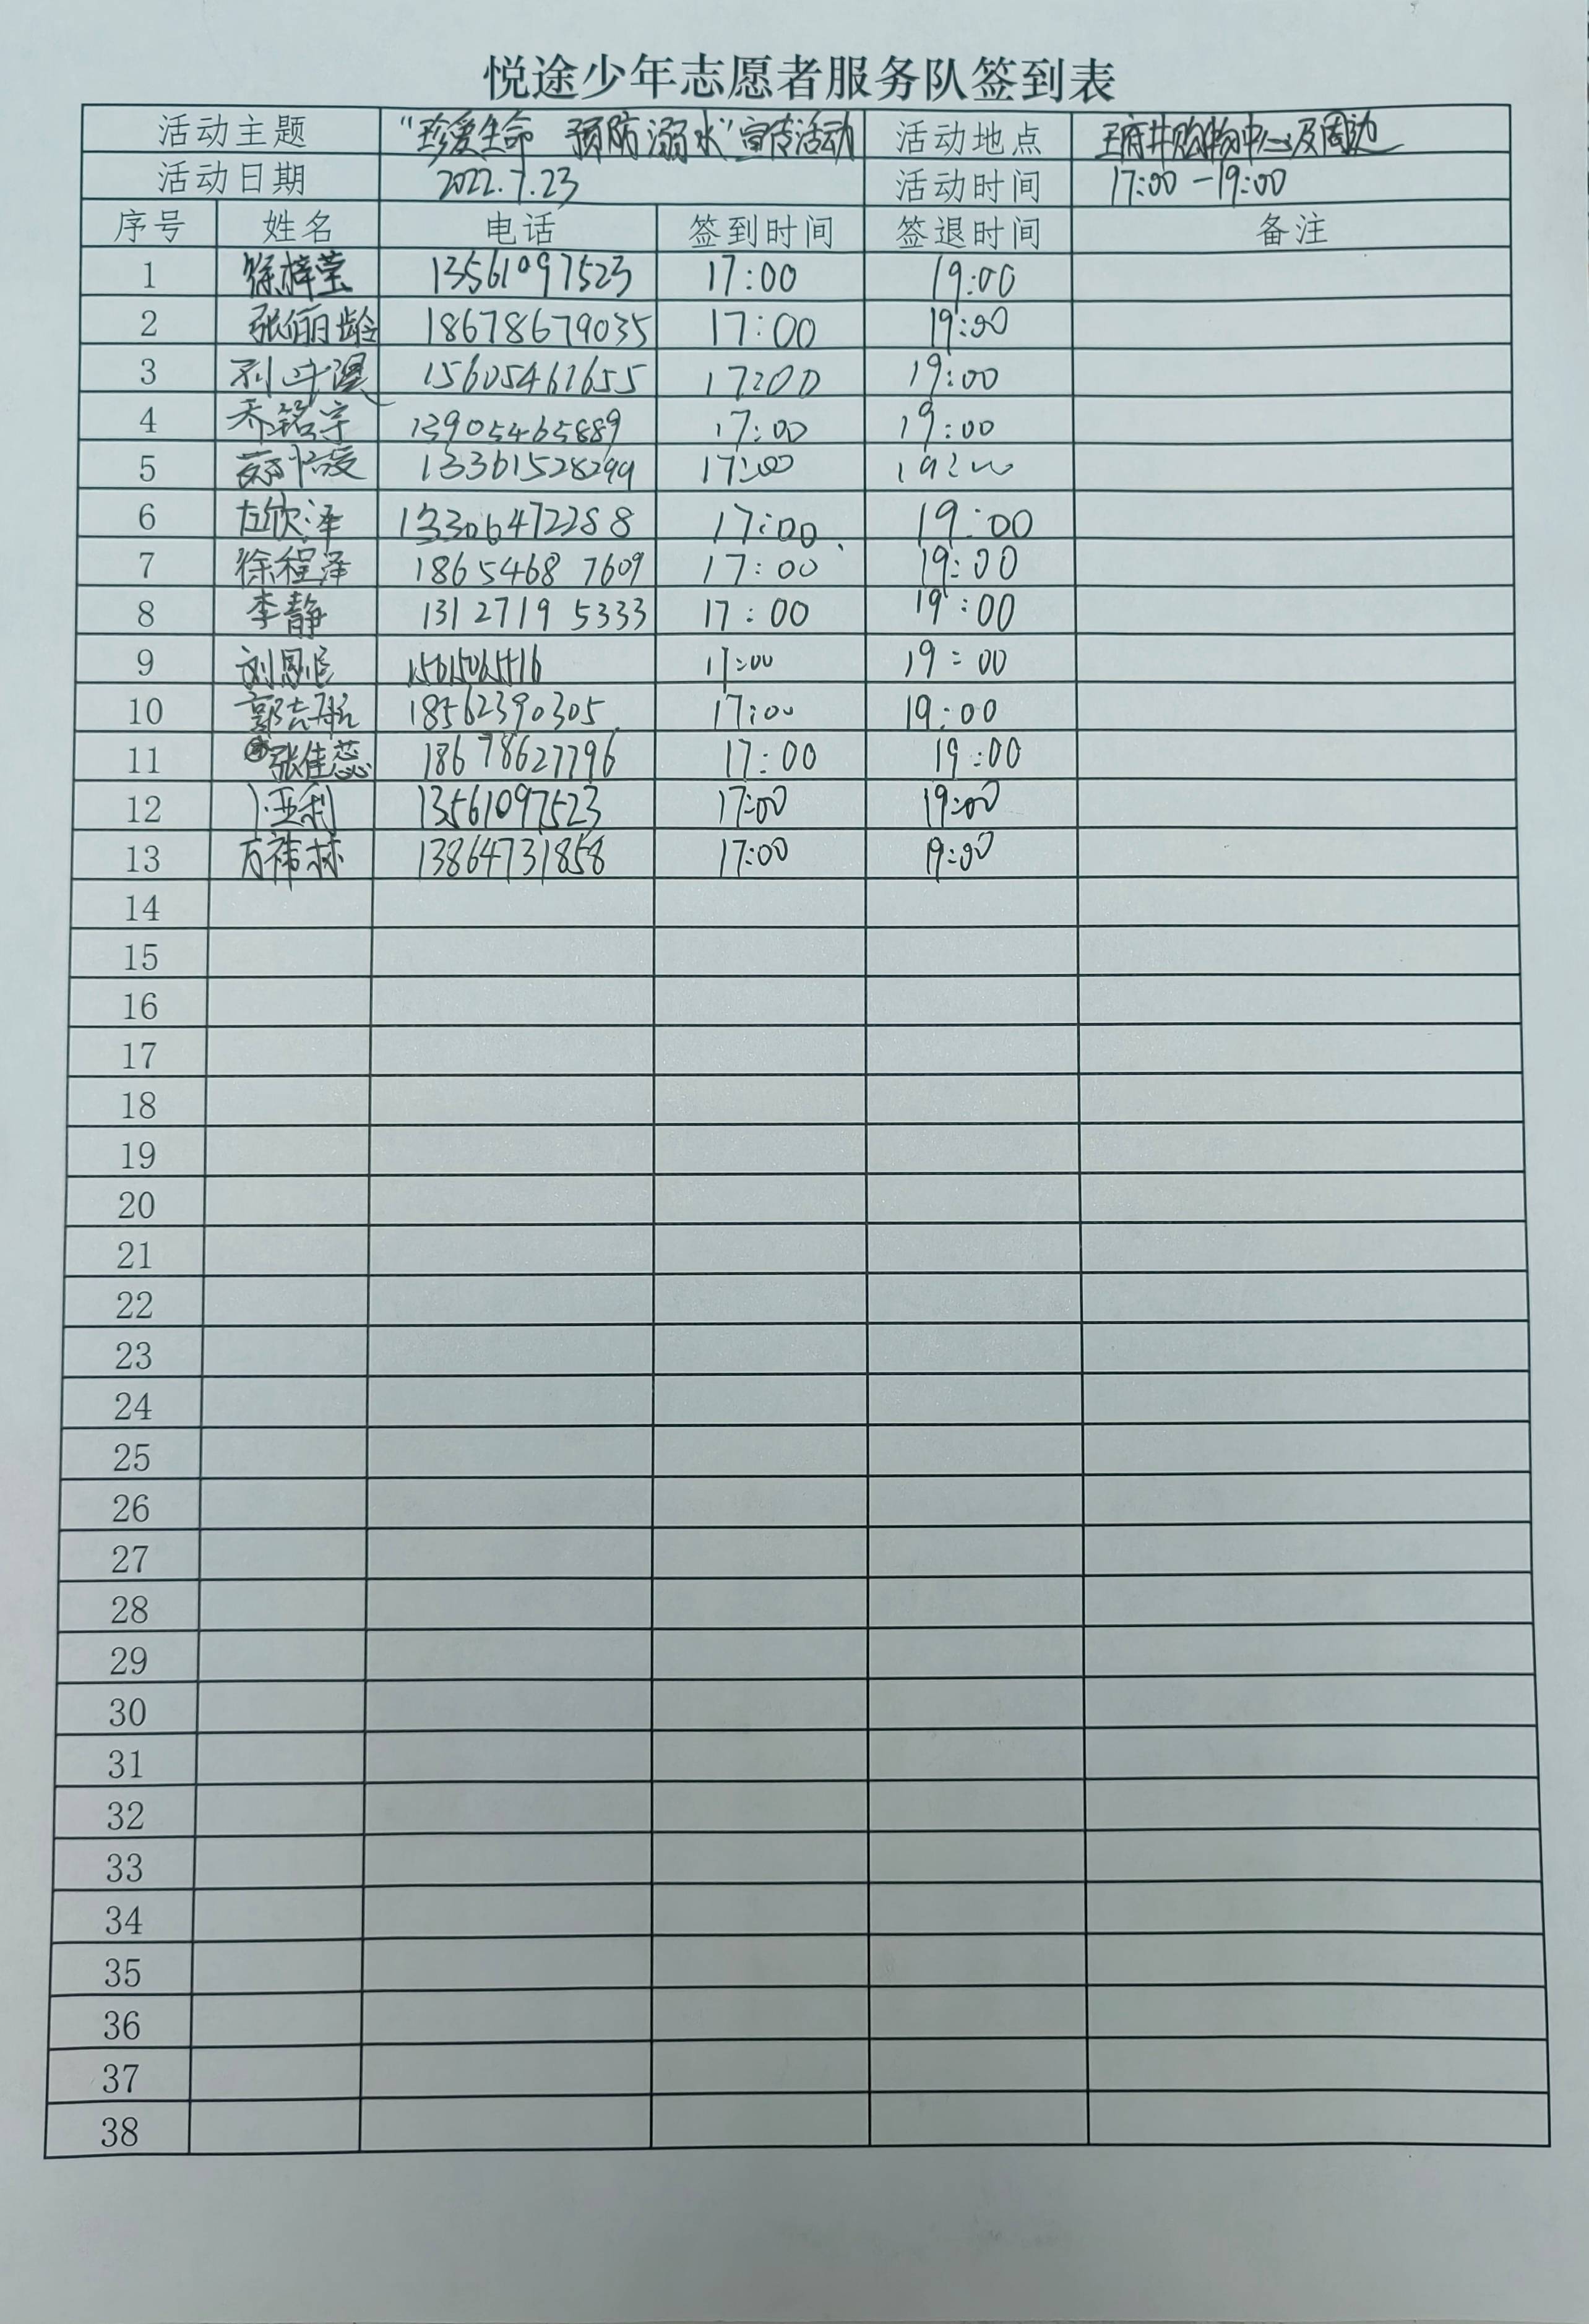 悦途少年志愿者服务队签到表
活动主题 "珍爱生命 预防溺水"宣传活动 活动地点 王府井购物中心及周边
活动日期 2022.7.23 活动时间 17:00-19:00
序号 姓名 电话 签到时间 签退时间 备注
1 徐梓莹 13561097523 17:00 19:00
2 张俪龄 18678679035 17:00 19:00
3 15605461655 17:00 19:00
4 乔铭宇 13905465889 17:00 19:00
5 13361528299 17:00 19:00
6 左欣泽 13306472288 17:00 19:00
7 徐程泽 1865468 7609 17:00 19:00
8 李静 1312719 5333 17:00 19:00
9 17:00 19:00
10 18562390305 17:00 19:00
11 张佳蕊 18678627796 17:00 19:00
12 卜亚利 13561097523 17:00 19:00
13 13864731858 17:00 19:00
14
15
16
17
18
19
20
21
22
23
24
25
26
27
28
29
30
31
32
33
34
35
36
37
38